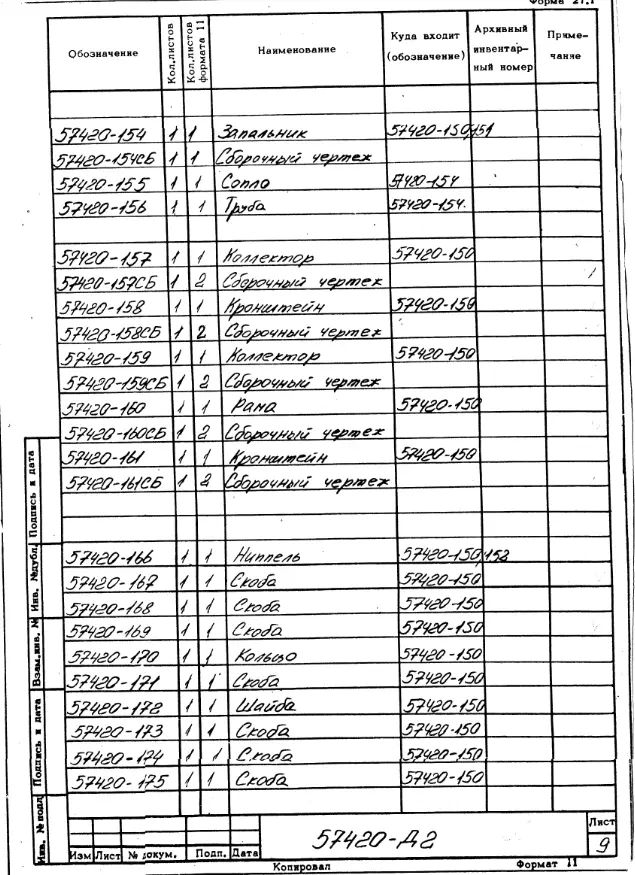 Форма 27.1
Обозначение Кол.листов Кол.листов формата 11 Наименование Куда входит (обозначение) Архивный инвентарный номер Примечание
57420-154 1 1 Запальник 57420-150,151
57420-154СБ 1 1 Сборочный чертеж
57420-155 1 1 Сопло 57420-154
57420-156 1 1 Труба 57420-154.
57420-157 1 1 Коллектор 57420-150
57420-157СБ 1 2 Сборочный чертеж
57420-158 1 1 Кронштейн 57420-150
57420-158СБ 1 2 Сборочный чертеж
57420-159 1 1 Коллектор 57420-150
57420-159СБ 1 2 Сборочный чертеж
57420-160 1 1 Рама 57420-150
57420-160СБ 1 2 Сборочный чертеж
57420-161 1 1 Кронштейн 57420-150
57420-161СБ 1 2 Сборочный чертеж
57420-166 1 1 Ниппель 57420-150,152
57420-167 1 1 Скоба 57420-150
57420-168 1 1 Скоба 57420-150
57420-169 1 1 Скоба 57420-150
57420-170 1 1 Кольцо 57420-150
57420-171 1 1 Скоба 57420-150
57420-172 1 1 Шайба 57420-150
57420-173 1 1 Скоба 57420-150
57420-174 1 1 Скоба 57420-150
57420-175 1 1 Скоба 57420-150
Подпись и дата
Инв. №дубл.
Взам.инв. №
Подпись и дата
Инв. № подл
57420-Д2
Лист
9
Изм Лист № докум. Подп. Дата
Копировал Формат 11